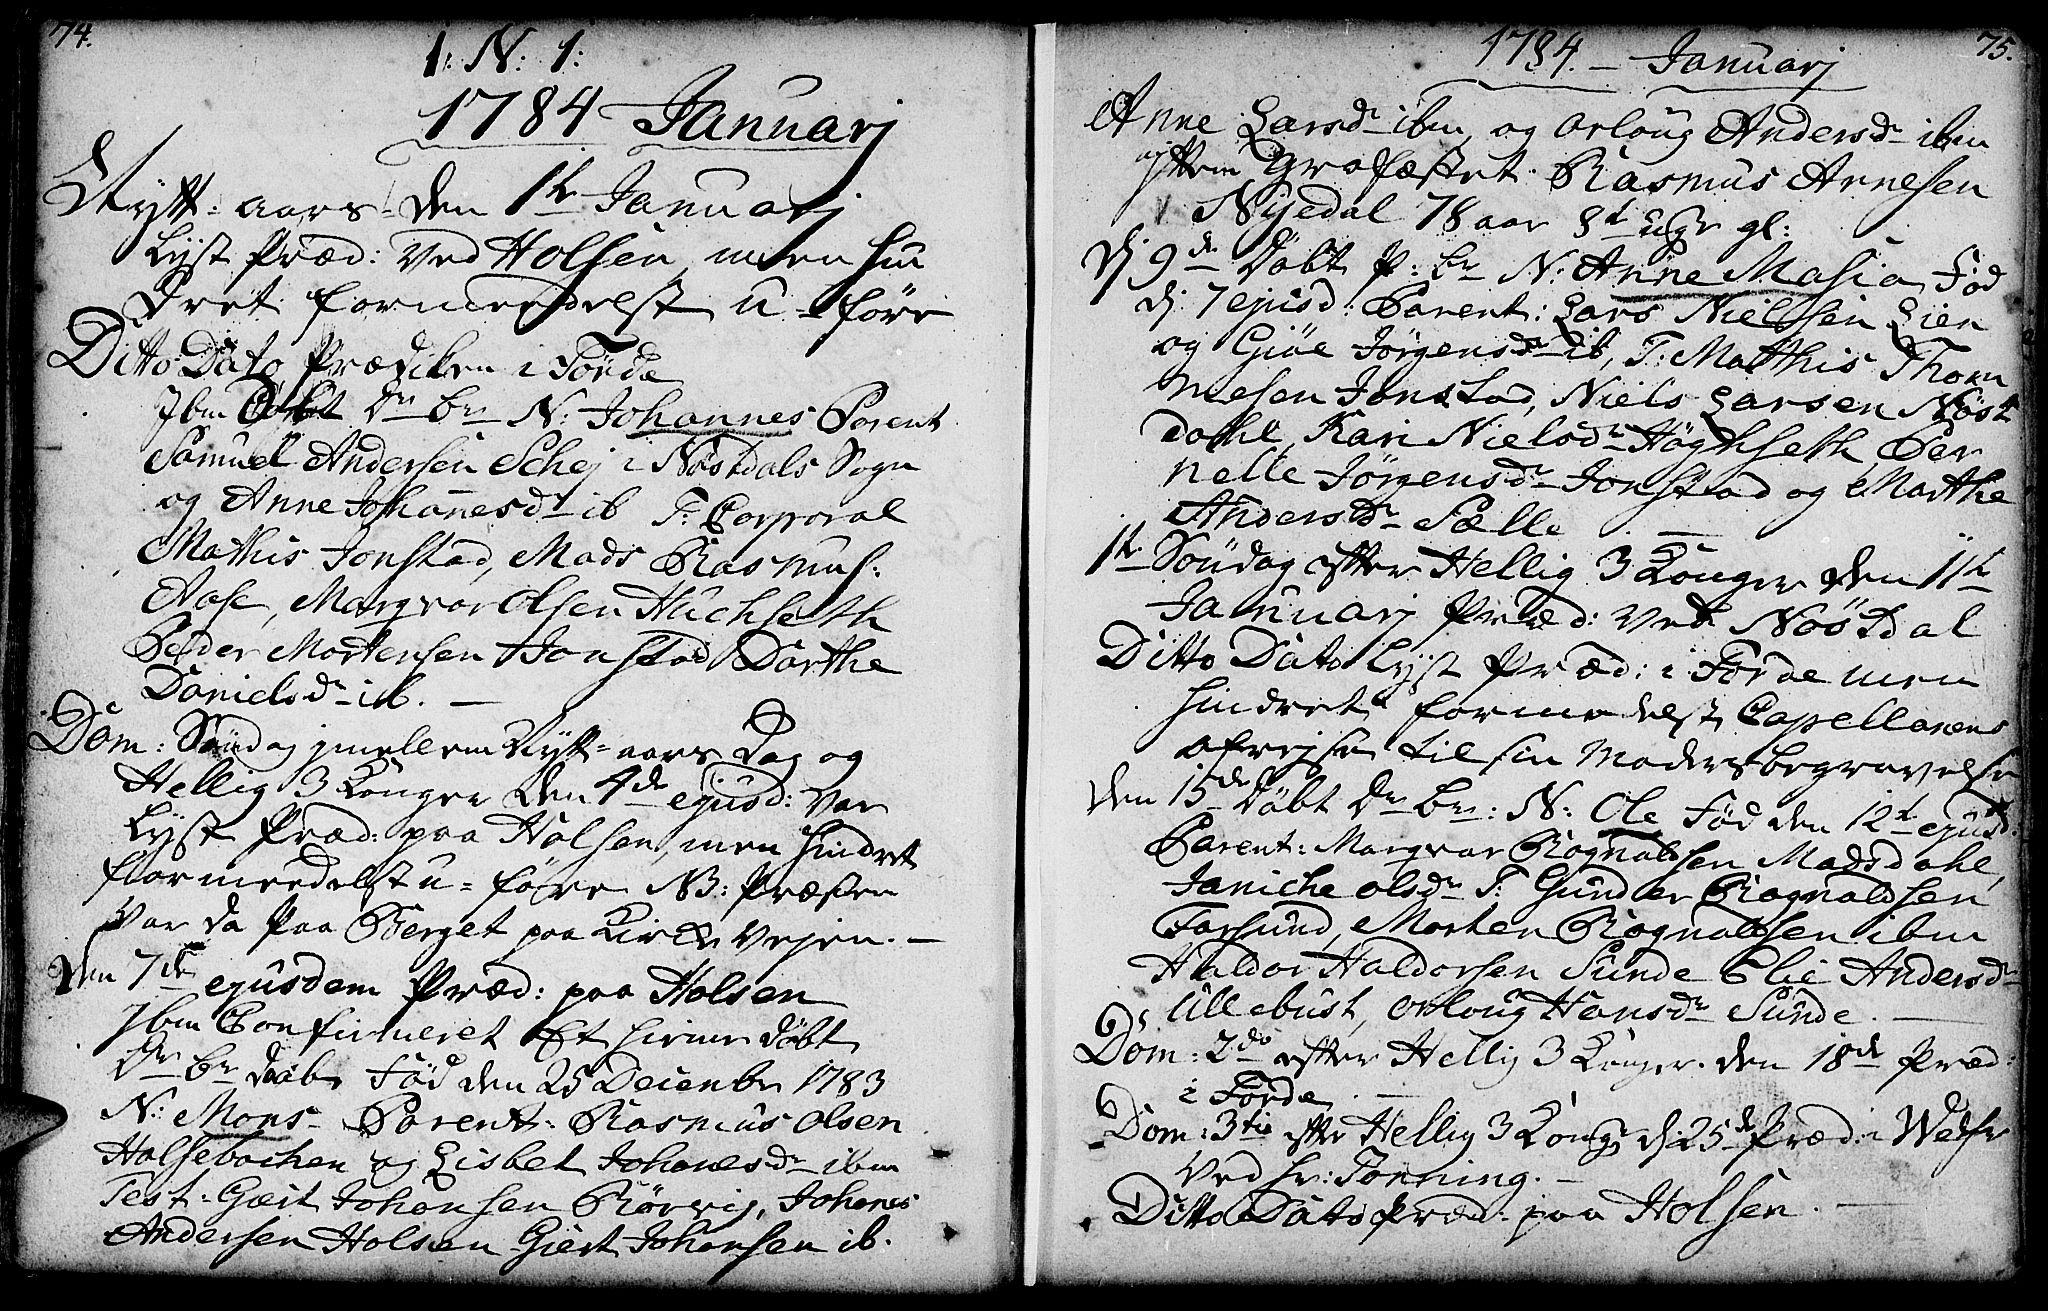 74.
1: N: 1:
1784 Januarj
Nytt-aars-den 1te Januarj
Lyst Præd: ved Holsen, men hin
dret formeedelst u-føre
Ditto Dato Prædiken i Førde
Ibm Døbt Dr br N: Johannes Parent
Samuel Andersen Schej i Nøstdals Sogn
og Anne Johannesdr ib T: Corporal
Mathis Jonstad, Mads Rasmus:
Aase, Margvar Olsen Huchseth
Peder Mortensen Jonstad Dorthe
Danielsdr ib.
Dom: Søndag jmellem Nytt-aars Dag og
Hellig 3 Konger den 4de ejusd: var
Lyst Præd: paa Holsen, men hindret
formeedelst u-føre NB: Præsten
var da paa Berget paa Kirke Vejen.
Den 7de ejusdem Præd: paa Holsen
Ibm Confirmeret Et hieme døbt
Dr br daab Fød den 25 December 1783
N: Mons Parent: Rasmus Olsen
Holsebachen og Lisbet Johanesdr ibm
Test: Gært Johansen Rørvig, Johanes
Andersen Holsen Giert Johansen ib.
1784. Januarj 75.
Anne Larsdr ibm, og Orloug Andersdr ibm
jttem Grafæstet Rasmus Arnesen
Nyedal 78 aar 8t uger gl:
Dj 9de Døbt P: br N: Anne Masia Fød
dj 7 ejusd: Parent: Lars Nielsen Lien
og Giøe Jørgensdr ib, T: Matthis Thom
mesen Jonstad, Niels Larsen Nøst
dahl, Kari Nielsdr Høgseth, Per
nelle Jørgensdr Jonstad og Marthe
Andersdr Sælle
1te Søndag efter Hellig 3 Konger den 11te
Januarj Præd: ved Nøstdal
Ditto Dato Lyst Præd: i Førde men
hindret formedelst Capellanens
afrejse til sin Moders begravelse
Den 15de Døbt Dr br: N: Ole Fød den 12t ejusd:
Parent: Margvar Rognaldsen Madsdahl,
Janiche Olsdr T: Gunder Rognaldsen
Farsund, Morten Rognaldsen ibm
Haldor Haldorsen Sunde Elie Andersdr
Ullebust, Orloug Hansdr Sunde.
Dom: 2do efter Hellig 3 Konger. den 18de Præd:
i Førde
Dom: 3tia efter Hellig 3 Kong: d: 25de Præd: i
Ved Hr: Tonning.
Ditto Dato Præd: paa Holsen.